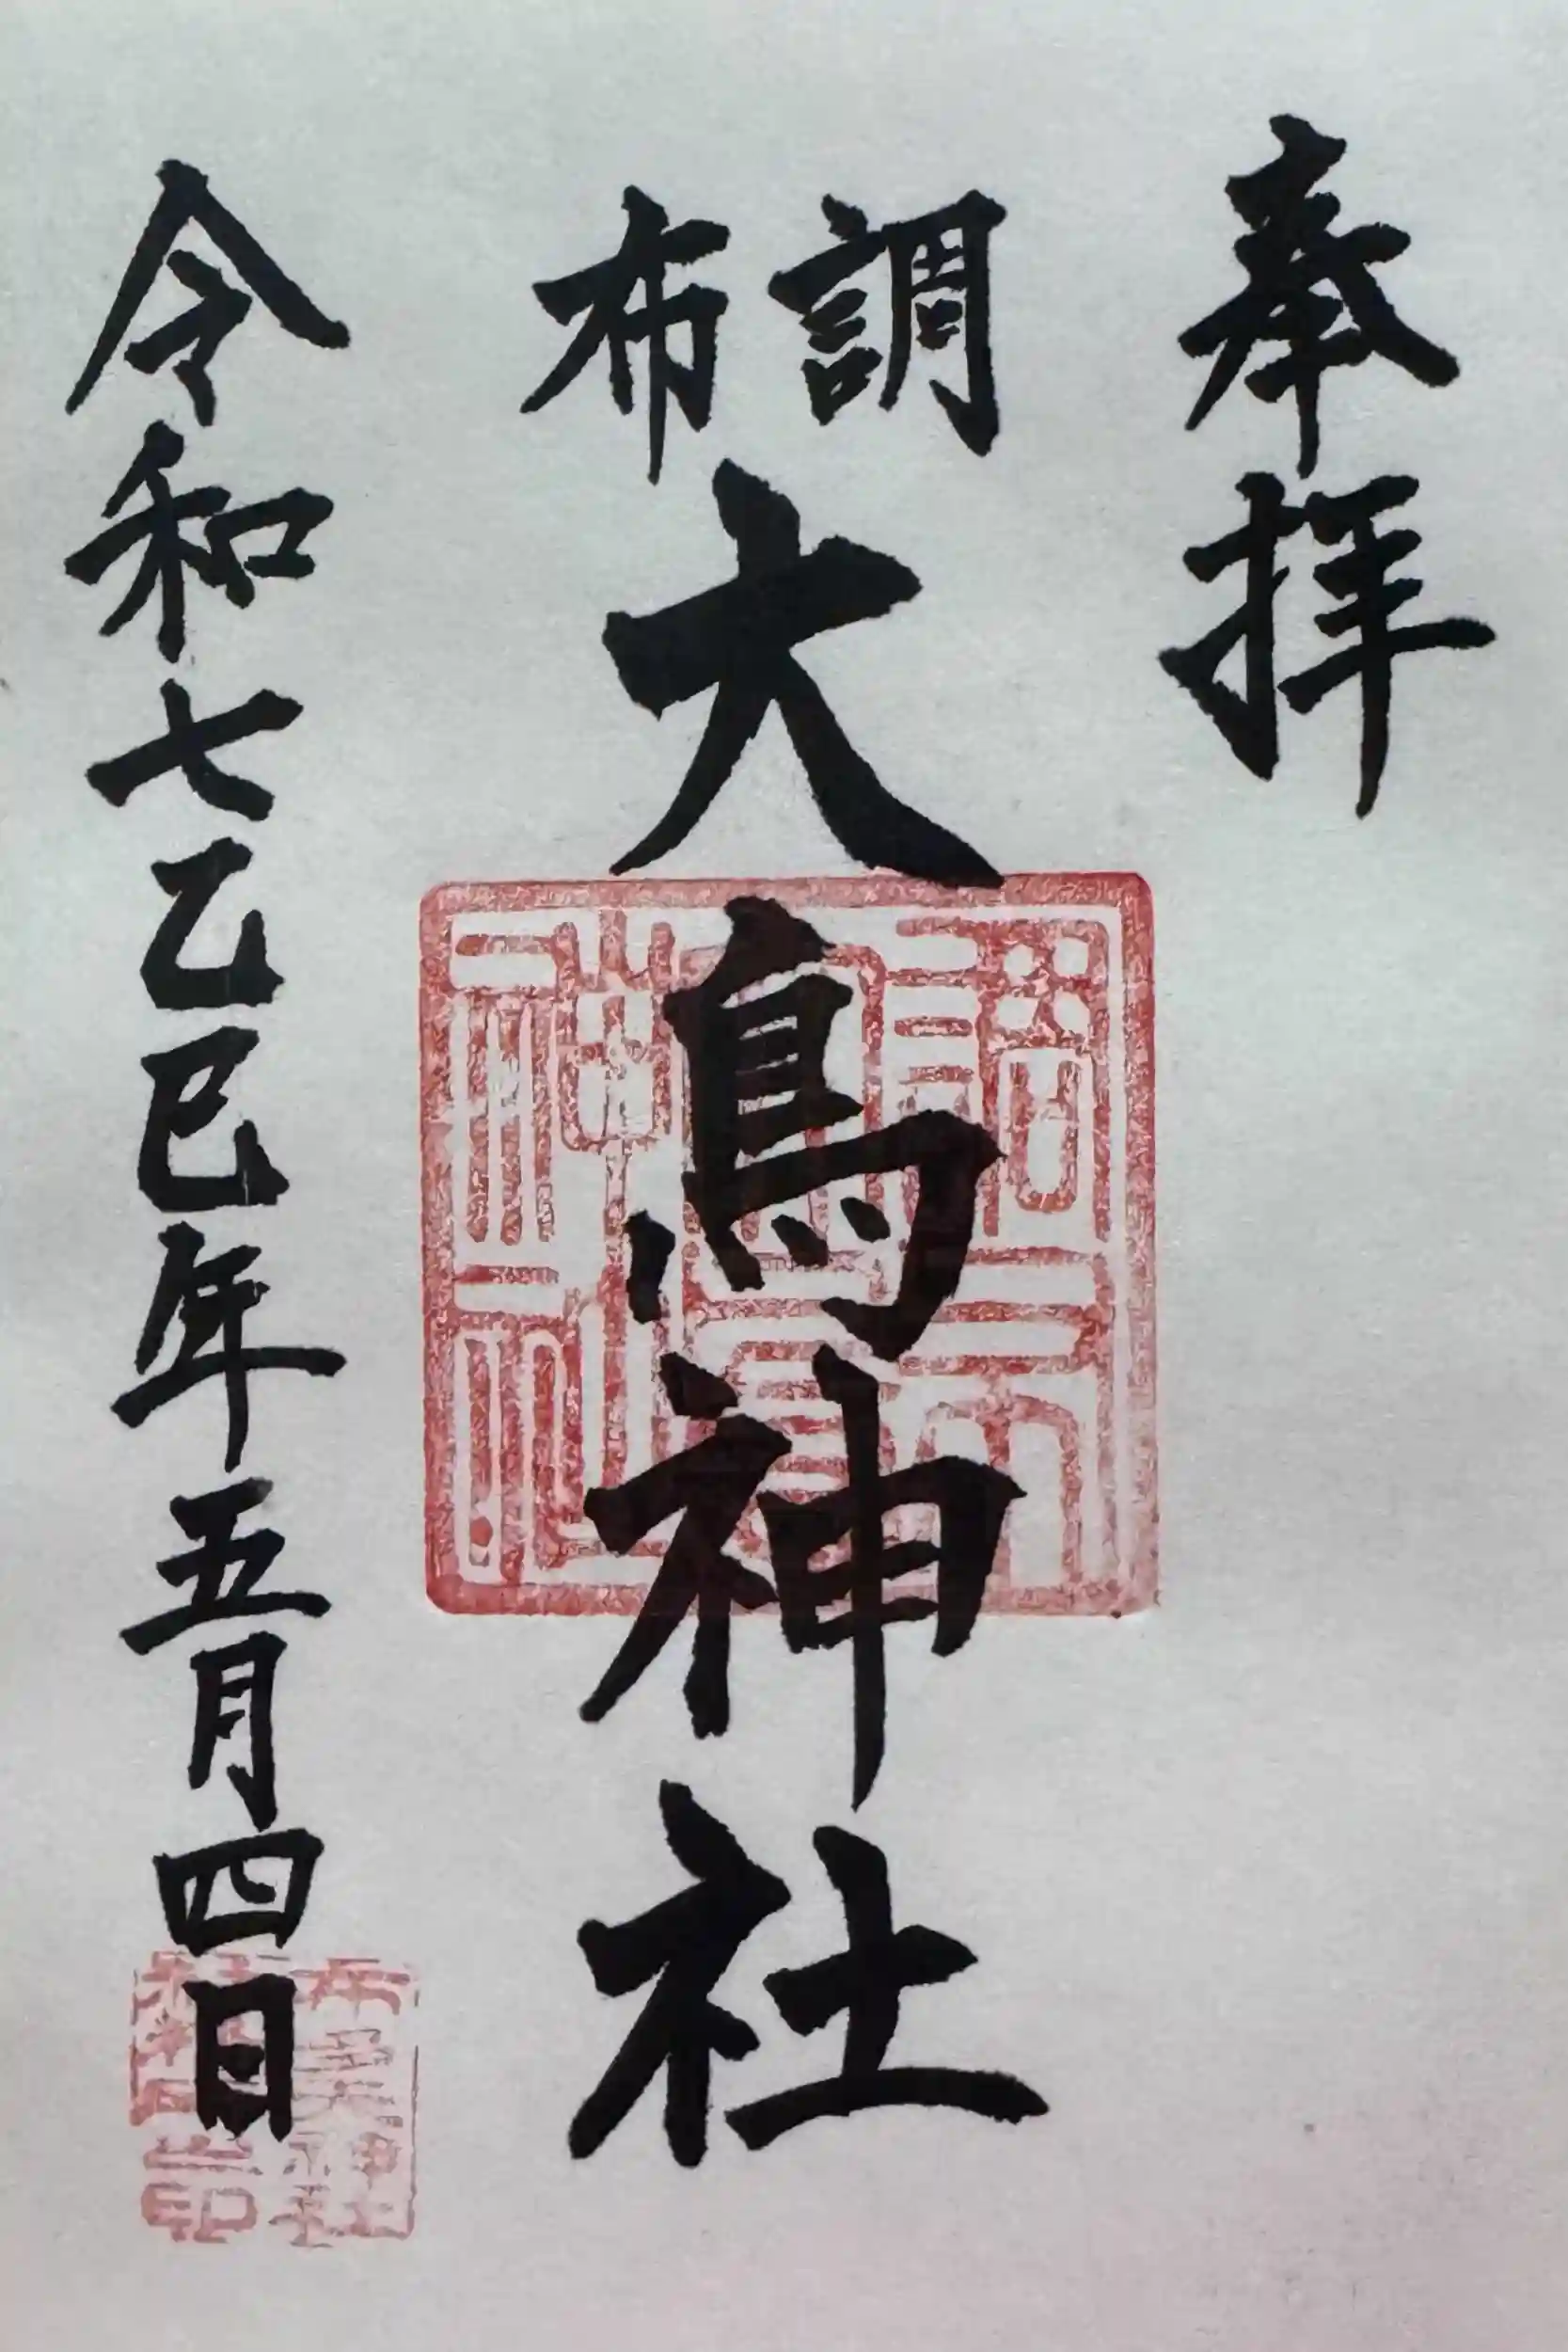 奉拝
調布
大鳥神社
令和七乙巳年五月四日